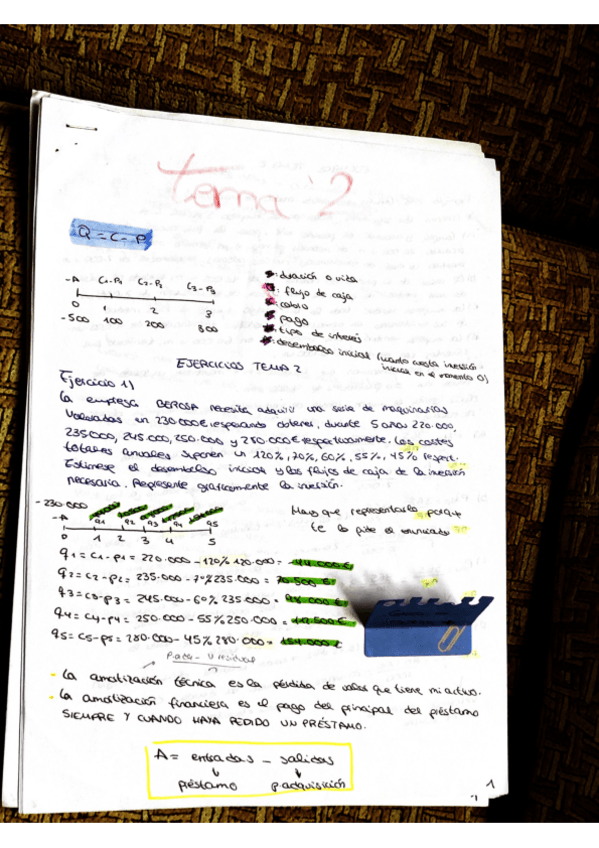 Tema 2
Q = C - P
-A C1-P1 C2-P2 C3-P3
0 1 2 3
-500 100 200 300
: duración o vida
: flujo de caja
: cobro
: pago
: tipo de interés
: desembolso inicial (cuanto cuesta inversión
inicial en el momento 0)
EJERCICIOS TEMA 2
Ejercicio 1)
La empresa BEROSA necesita adquirir una serie de maquinarias
valoradas en 230.000€ esperando obtener, durante 5 años 220.000,
235.000, 245.000, 250.000 y 280.000€ respectivamente. Los costes
totales anuales suponen un 120%, 70%, 60%, 55%, 45% respect.
Estímese el desembolso inicial y los flujos de caja de la inversión
necesaria. Represente gráficamente la inversión.
-230.000
-A q1 q2 q3 q4 q5
0 1 2 3 4 5
Hay que representarlo porq
te lo pide el enunciado
q1 = C1-P1 = 220.000 - 120% 120.000 = -44.000€
q2 = C2-P2 = 235.000 - 70% 235.000 = 70.500€
q3 = C3-P3 = 245.000 - 60% 235.000 = 98.000€
q4 = C4-P4 = 250.000 - 55% 250.000 = 112.500€
q5 = C5-P5 = 280.000 - 45% 280.000 = 154.000€
- V residual
- La amortización técnica es la pérdida de valor que tiene mi activo.
- La amortización financiera es el pago del principal del préstamo
SIEMPRE Y CUANDO HAYA PEDIDO UN PRÉSTAMO.
A = entradas - salidas
préstamo p.adquisición
1